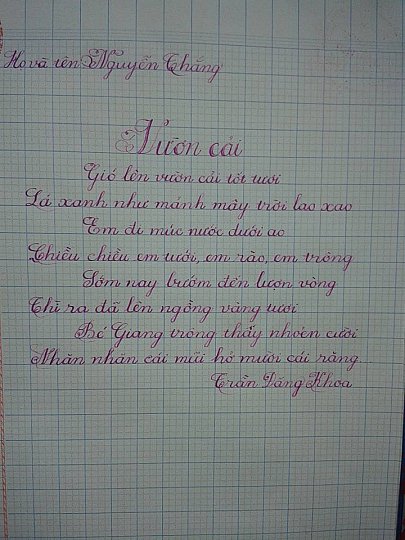 Họ và tên Nguyễn Thắng
Vườn cải
Gió lên vườn cải tốt tươi
Lá xanh như mảnh mây trời lao xao
Em đi múc nước dưới ao
Chiều chiều em tưới, em rào, em trông
Sớm nay bướm đến lượn vòng
Thì ra đã lên ngồng vàng tươi
Bé Giang trông thấy nhoẻn cười
Nhăn nhăn cái mũi hở mười cái răng
Trần Đăng Khoa